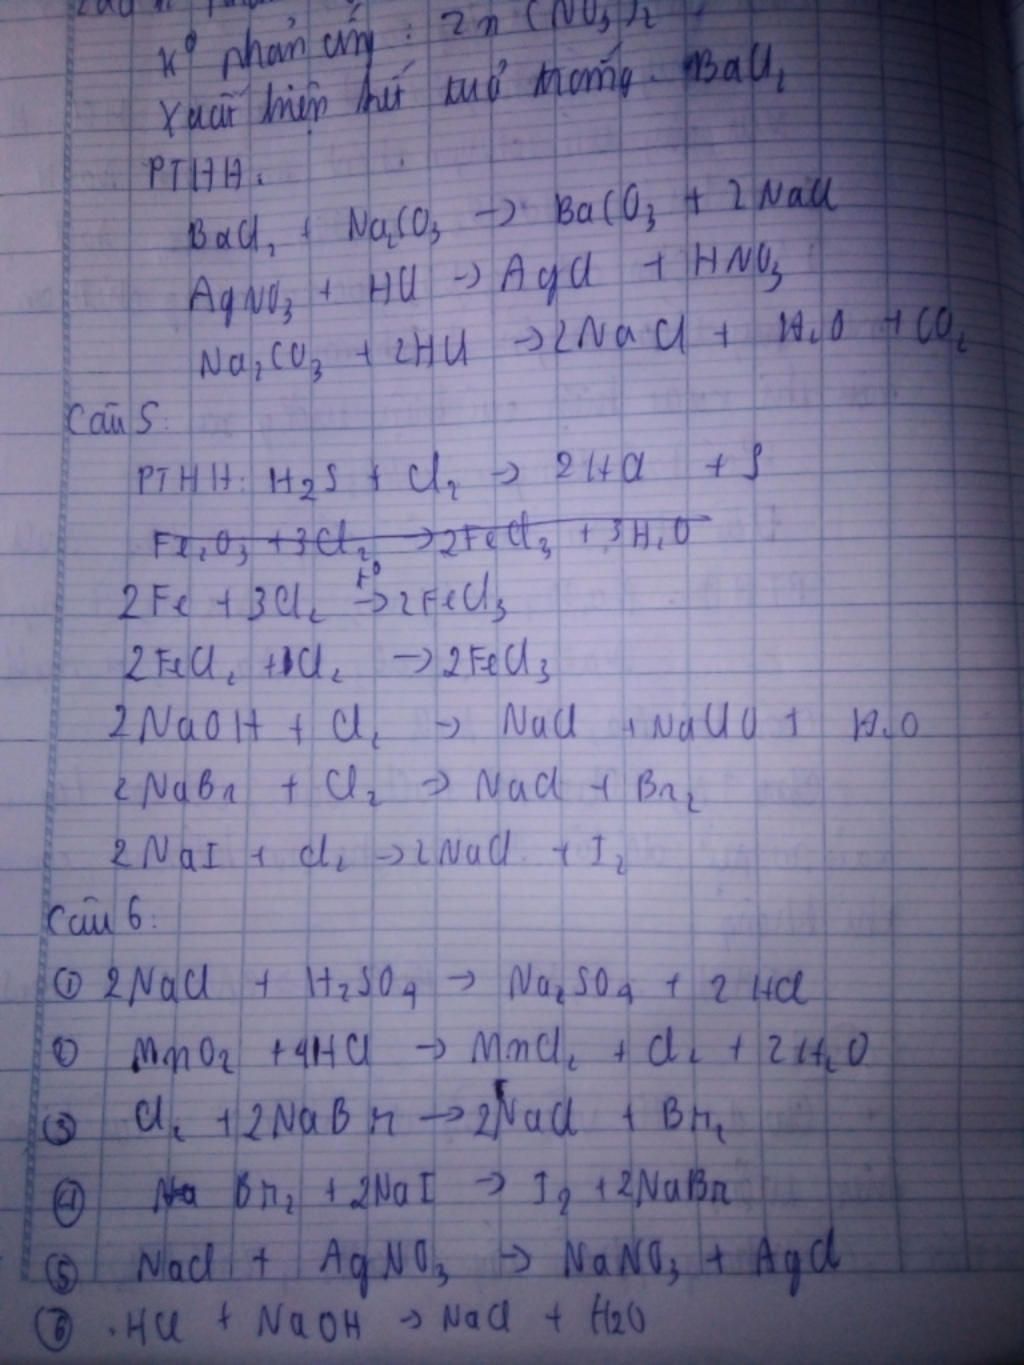 K° phản ứng : Zn(NO₃)₂
Xuất hiện kết tủa trắng. BaCl₂
PTHH.
BaCl₂ + Na₂CO₃ → BaCO₃ + 2NaCl
AgNO₃ + HCl → AgCl + HNO₃
Na₂CO₃ + 2HCl → 2NaCl + H₂O + CO₂
Câu 5:
PTHH: H₂S + Cl₂ → 2HCl + S
Fe₂O₃ + 3Cl₂ → 2FeCl₃ + 3H₂O
2Fe + 3Cl₂ t° → 2FeCl₃
2FeCl₂ + 1Cl₂ → 2FeCl₃
2NaOH + Cl₂ → NaCl + NaClO + H₂O
2NaBr + Cl₂ → NaCl + Br₂
2NaI + Cl₂ → 2NaCl + I₂
Câu 6:
① 2NaCl + H₂SO₄ → Na₂SO₄ + 2HCl
② MnO₂ + 4HCl → MnCl₂ + Cl₂ + 2H₂O
③ Cl₂ + 2NaBr → 2NaCl + Br₂
④ Br₂ + 2NaI → I₂ + 2NaBr
⑤ NaCl + AgNO₃ → NaNO₃ + AgCl
⑥ HCl + NaOH → NaCl + H₂O